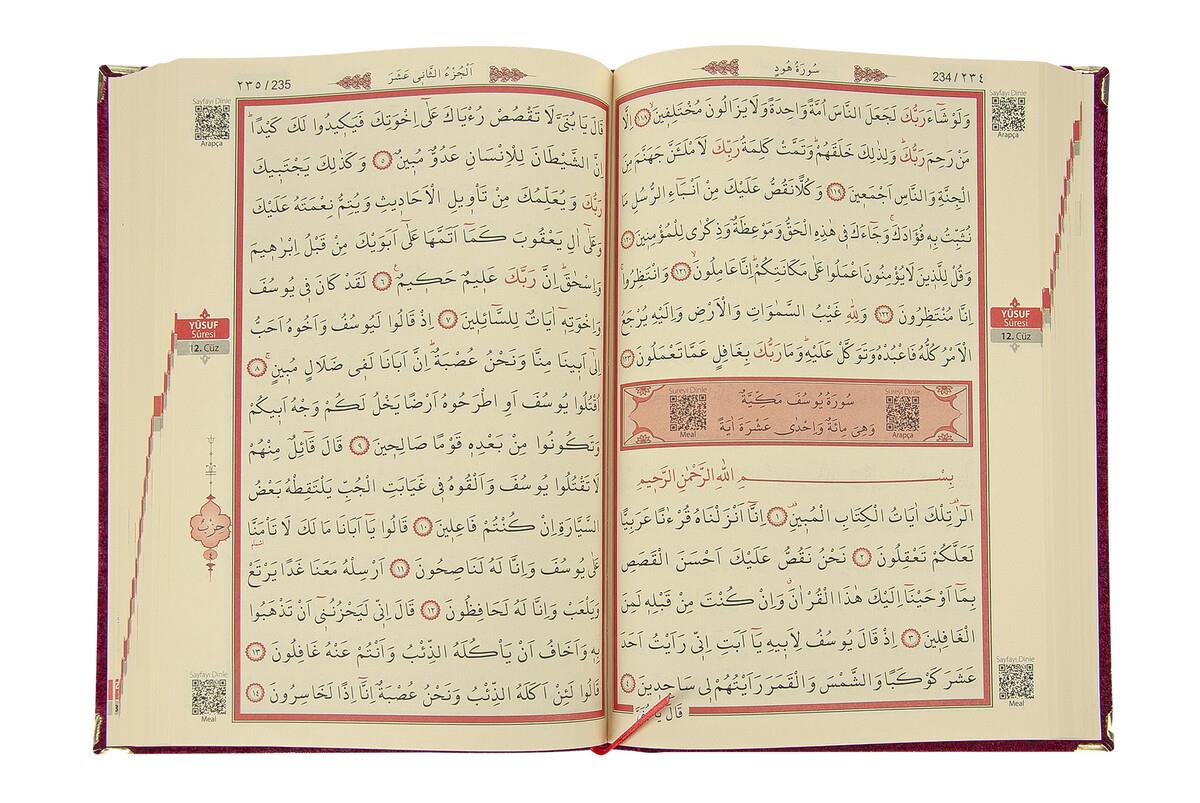 سُورَةُ هُودٍ
234 / ٢٣٤
وَلَوْ شَٓاءَ رَبُّكَ لَجَعَلَ النَّاسَ اُمَّةً وَاحِدَةً وَلَا يَزَالُونَ مُخْتَلِفٖينَۙ ﴿١١٨﴾ اِلَّا
مَنْ رَحِمَ رَبُّكَۜ وَلِذٰلِكَ خَلَقَهُمْۜ وَتَمَّتْ كَلِمَةُ رَبِّكَ لَاَمْلَـَٔنَّ جَهَنَّمَ مِنَ
الْجِنَّةِ وَالنَّاسِ اَجْمَعٖينَ ﴿١١٩﴾ وَكُلًّا نَقُصُّ عَلَيْكَ مِنْ اَنْـبَٓاءِ الرُّسُلِ مَا
نُثَبِّتُ بِهٖ فُؤٰادَكَۚ وَجَٓاءَكَ فٖي هٰذِهِ الْحَقُّ وَمَوْعِظَةٌ وَذِكْرٰى لِلْمُؤْمِنٖينَ ﴿١٢٠﴾
وَقُلْ لِلَّذٖينَ لَا يُؤْمِنُونَ اعْمَلُوا عَلٰى مَكَانَتِكُمْۜ اِنَّا عَامِلُونَۙ ﴿١٢١﴾ وَانْتَظِرُواۚ
اِنَّا مُنْتَظِرُونَ ﴿١٢٢﴾ وَلِلّٰهِ غَيْبُ السَّمٰوَاتِ وَالْاَرْضِ وَاِلَيْهِ يُرْجَعُ
الْاَمْرُ كُلُّهُ فَاعْبُدْهُ وَتَوَكَّلْ عَلَيْهِۜ وَمَا رَبُّكَ بِغَافِلٍ عَمَّا تَعْمَلُونَ ﴿١٢٣﴾
Sureyi Dinle
Sureyi Dinle
سُورَةُ يُوسُفَ مَكِّيَّةٌ
وَهِيَ مِائَةٌ وَاِحْدٰى عَشْرَةَ اٰيَةً
Meal
Arapça
بِسْــــمِ اللّٰهِ الرَّحْمٰنِ الرَّحٖيمِ
الٓرٰ۠ تِلْكَ اٰيَاتُ الْكِتَابِ الْمُبٖينِ۠ ﴿١﴾ اِنَّٓا اَنْزَلْنَاهُ قُرْءٰنًا عَرَبِيًّا
لَعَلَّكُمْ تَعْقِلُونَ ﴿٢﴾ نَحْنُ نَقُصُّ عَلَيْكَ اَحْسَنَ الْقَصَصِ
بِمَٓا اَوْحَيْنَٓا اِلَيْكَ هٰذَا الْقُرْاٰنَۗ وَاِنْ كُنْتَ مِنْ قَبْلِهٖ لَمِنَ
الْغَافِلٖينَ ﴿٣﴾ اِذْ قَالَ يُوسُفُ لِاَبٖيهِ يَٓا اَبَتِ اِنّٖي رَاَيْتُ اَحَدَ
عَشَرَ كَوْكَبًا وَالشَّمْسَ وَالْقَمَرَ رَاَيْتُهُمْ لٖي سَاجِدٖينَ ﴿٤﴾
قَالَ يَا بُنَيَّ
Sayfayı Dinle
Arapça
YÛSUF
Sûresi
12. Cüz
Sayfayı Dinle
Meal
٢٣٥ / 235
اَلْجُزْءُ الثَّانٖي عَشَرَ
قَالَ يَا بُنَيَّ لَا تَقْصُصْ رُءْيَاكَ عَلٰٓى اِخْوَتِكَ فَيَكٖيدُوا لَكَ كَيْدًاۜ
اِنَّ الشَّيْطَانَ لِلْاِنْسَانِ عَدُوٌّ مُبٖينٌ ﴿٥﴾ وَكَذٰلِكَ يَجْتَبٖيكَ
رَبُّكَ وَيُعَلِّمُكَ مِنْ تَأْوٖيلِ الْاَحَادٖيثِ وَيُتِمُّ نِعْمَتَهُ عَلَيْكَ
وَعَلٰٓى اٰلِ يَعْقُوبَ كَمَٓا اَتَمَّهَا عَلٰٓى اَبَوَيْكَ مِنْ قَبْلُ اِبْرٰهٖيمَ
وَاِسْحٰقَۜ اِنَّ رَبَّكَ عَلٖيمٌ حَكٖيمٌ۟ ﴿٦﴾ لَقَدْ كَانَ فٖي يُوسُفَ
وَاِخْوَتِهٖٓ اٰيَاتٌ لِلسَّٓائِلٖينَ ﴿٧﴾ اِذْ قَالُوا لَيُوسُفُ وَاَخُوهُ اَحَبُّ
اِلٰٓى اَبٖينَا مِنَّا وَنَحْنُ عُصْبَةٌۜ اِنَّ اَبَانَا لَفٖي ضَلَالٍ مُبٖينٍۚ ﴿٨﴾
اُقْتُلُوا يُوسُفَ اَوِ اطْرَحُوهُ اَرْضًا يَخْلُ لَكُمْ وَجْهُ اَبٖيكُمْ
وَتَكُونُوا مِنْ بَعْدِهٖ قَوْمًا صَالِحٖينَ ﴿٩﴾ قَالَ قَٓائِلٌ مِنْهُمْ
لَا تَقْتُلُوا يُوسُفَ وَاَلْقُوهُ فٖي غَيَابَتِ الْجُبِّ يَلْتَقِطْهُ بَعْضُ
السَّيَّارَةِ اِنْ كُنْتُمْ فَاعِلٖينَ ﴿١٠﴾ قَالُوا يَٓا اَبَانَا مَا لَكَ لَا تَأْمَنَّا
عَلٰى يُوسُفَ وَاِنَّا لَهُ لَنَاصِحُونَ ﴿١١﴾ اَرْسِلْهُ مَعَنَا غَدًا يَرْتَعْ
وَيَلْعَبْ وَاِنَّا لَهُ لَحَافِظُونَ ﴿١٢﴾ قَالَ اِنّٖي لَيَحْزُنُنٖٓي اَنْ تَذْهَبُوا
بِهٖ وَاَخَافُ اَنْ يَأْكُلَهُ الذِّئْبُ وَاَنْتُمْ عَنْهُ غَافِلُونَ ﴿١٣﴾
قَالُوا لَئِنْ اَكَلَهُ الذِّئْبُ وَنَحْنُ عُصْبَةٌ اِنَّٓا اِذًا لَخَاسِرُونَ ﴿١٤﴾
Sayfayı Dinle
Arapça
YÛSUF
Sûresi
12. Cüz
حِزْبٌ
٤
Sayfayı Dinle
Meal